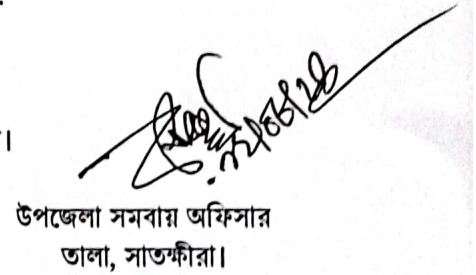 ।
উপজেলা সমবায় অফিসার
তালা, সাতক্ষীরা।